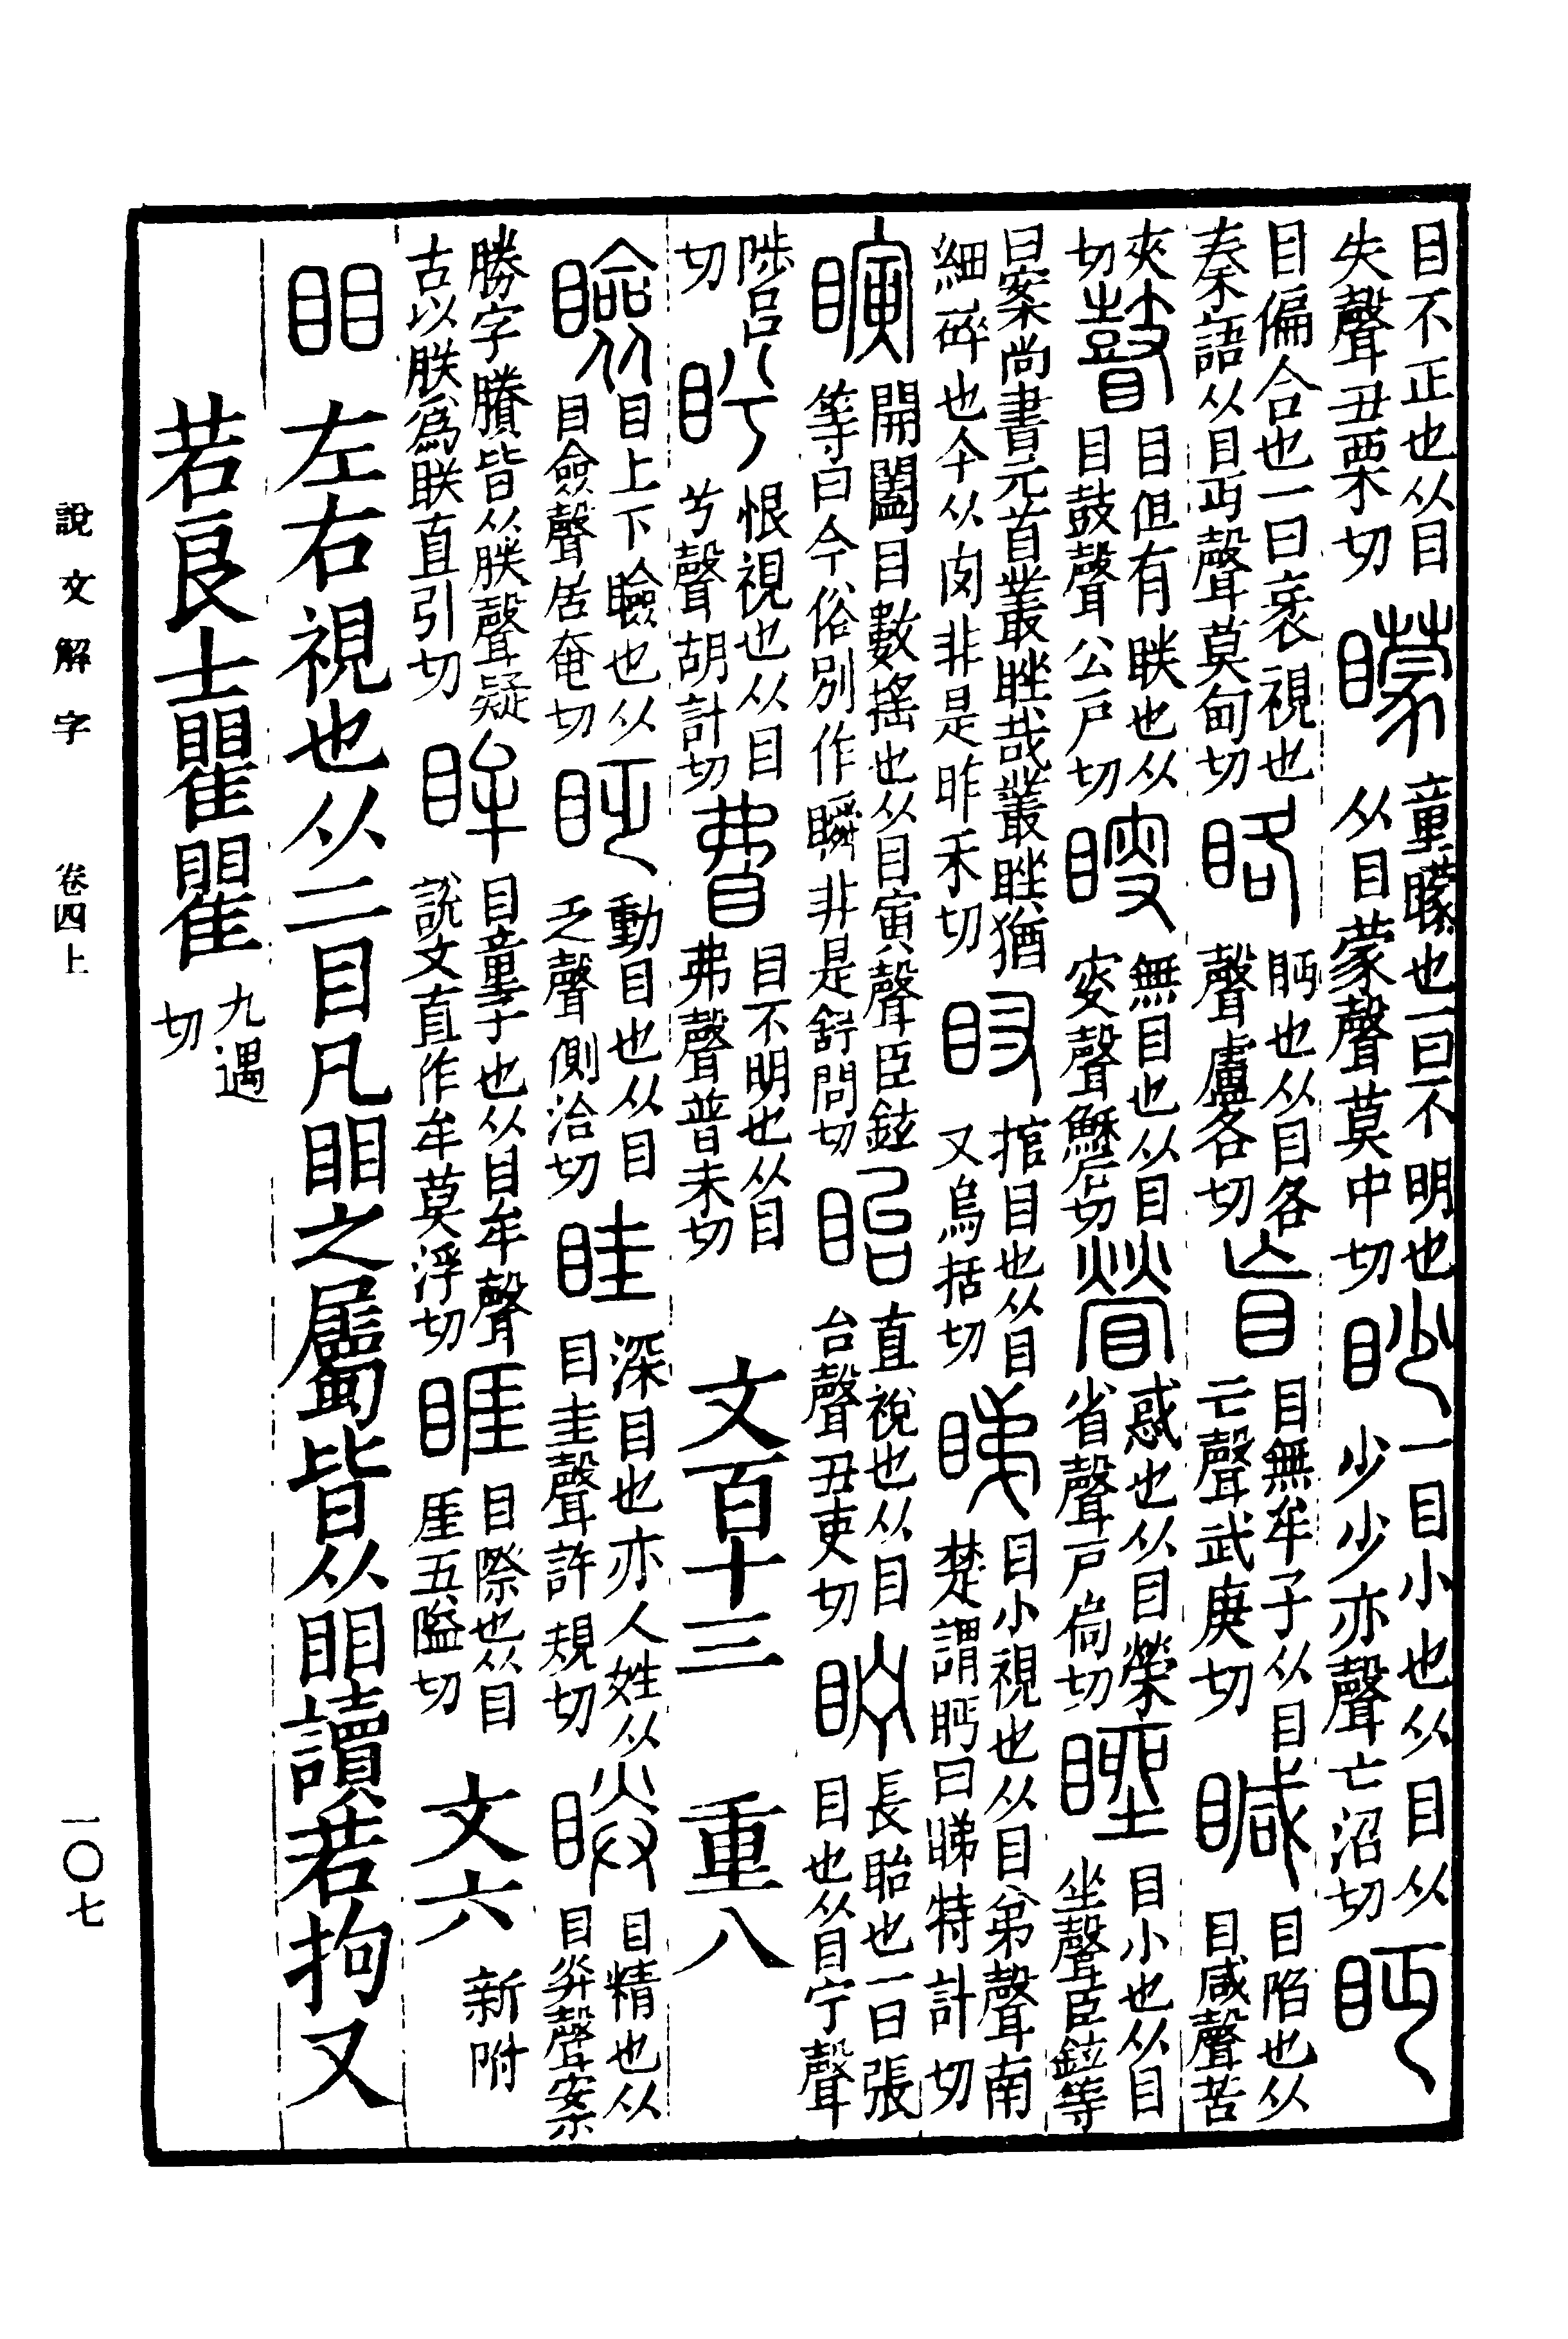 目不正也从目失聲丑栗切 矇 童矇也一曰不明也从目蒙聲莫中切 眇 一目小也从目从少少亦聲亡沼切 眄
目偏合也一曰衺視也秦語从目丏聲莫甸切 眳 眄也从目各聲盧各切 盲 目無牟子从目亡聲武庚切 瞷 目陷也从目咸聲苦
夾切 瞽 目但有眹也从目鼓聲公戶切 瞍 無目也从目叜聲穌后切 瞢 惑也从目榮省聲戶扃切 睉 目小也从目坐聲臣鉉等
曰案尚書元首叢睉哉叢睉猶細碎也今从肉非是昨禾切 䀛 掐目也从目叉烏括切 睇 目小視也从目弟聲南楚謂眄曰睇特計切
瞚 開闔目數搖也从目寅聲臣鉉等曰今俗別作瞬非是舒問切 眙 直視也从目台聲丑吏切 眝 長眙也一曰張目也从目宁聲
陟呂切 盻 恨視也从目兮聲胡計切 䀟 目不明也从目弗聲普未切 文百十三 重八
瞼 目上下瞼也从目僉聲居奄切 眨 動目也从目乏聲側洽切 眭 深目也亦人姓从目圭聲許規切 眹 目精也从目灷聲案
勝字賸皆从朕聲疑古以朕爲眹直引切 眸 目童子也从目牟聲說文直作牟莫浮切 睚 目際也从目厓五隘切 文六 新附
䀠 左右視也从二目凡䀠之屬皆从䀠讀若拘又
若良士瞿瞿九遇切
說文解字 卷四上 一〇七